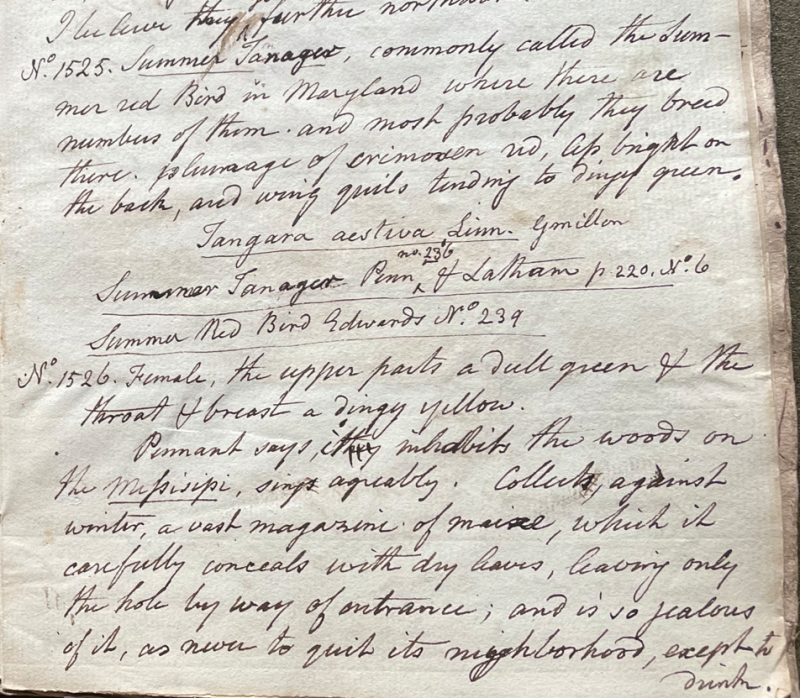 I believe they further northw
No. 1525. Summer Tanager, commonly called the Sum-
mer red Bird in Maryland where there are
numbers of them. and most probably they breed
there. plumage of crimosen red, less bright on
the back, and wing quils tending to dingy green.
Tangara aestiva Linn. Gmillon
no. 236
Summer Tanager Penn & Latham p. 220. No. 6
Summer Red Bird Edwards No. 239
No. 1526. Female, the upper parts a dull green & the
throat & breast a dingy yellow.
Pennant says, it inhabits the woods on
the Missisipi, sings agreably. Collects, against
winter, a vast magazine of maize, which it
carefully conceals with dry leaves, leaving only
the hole by way of entrance; and is so jealous
of it, as never to quit its nighborhood, exept to
drink.